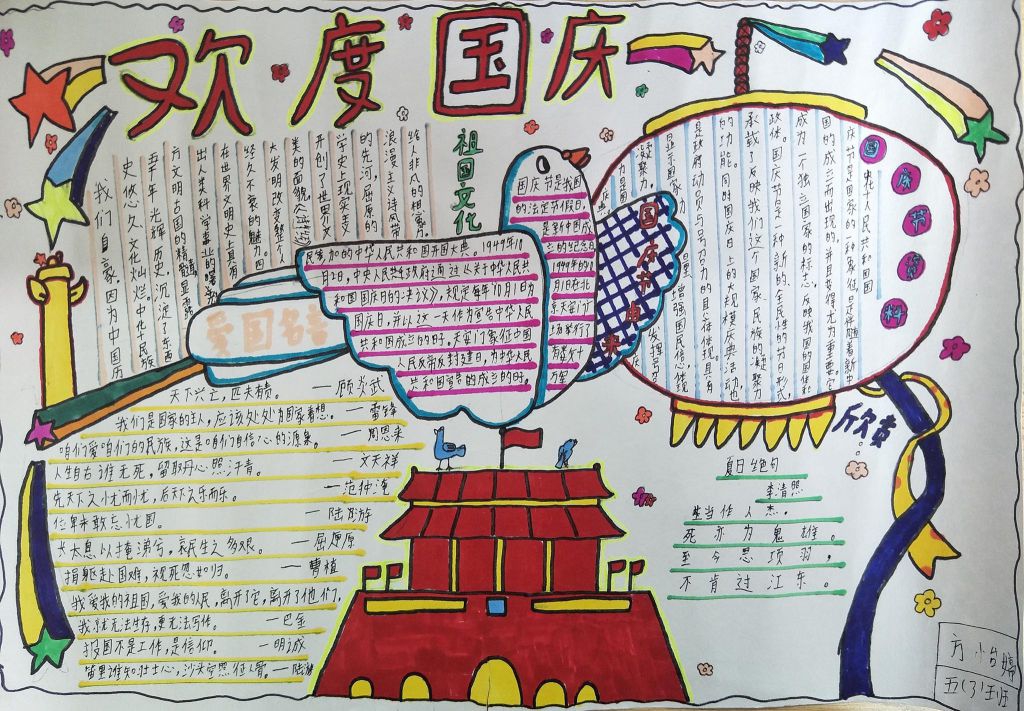 欢度国庆
祖国文化
我们自豪,因为中国历
史悠久,文化灿烂。中华民族
五千年光辉历史,沉淀了东西
方文明古国的精髓,
出人类科学事业的曙
在世界文明史上具有
经久不衰的魅力。四
大发明改变整个人
类的面貌,《诗经》
开创了世界文
学史上现实主义
的先河,屈原的
浪漫主义诗风带
给人非凡的想象。
国庆节是我国
的法定节假日,
是新中国成
立的纪念日
1949年10
月1日在北
京天安门
广场举行了
有
万军
民参加的中华人民共和国开国大典。1949年10
月2日,中央人民政府通过《关于中华人民共
和国国庆日的决议》,规定每年10月1日为
国庆日,并以这一天作为宣告中华人民
共和国成立的日子。天安门象征中国
人民反帝反封建日,为中华人民
共和国宣告的成立的日子。
国庆节由来
国庆节资料
中华人民共和国
庆节是国家的一种象征,是伴随着新中
国的成立而出现的,并且变得尤为重要。它
成为一个独立国家的标志,反映我国的国体和
政体。国庆节是一种新的、全民性的节日形式,
承载了反映我们这个国家、民族的凝聚力
的功能。同时国庆日上的大规模庆典活动也
是政府动员与号召力的具体体现。具有
显示国家力量、增强国民信心,体现
凝聚力,发挥号召
爱国名言
天下兴亡,匹夫有责。 —顾炎武
我们是国家的主人,应该处处为国家着想。—雷锋
咱们爱咱们的民族,这是咱们自信心的源泉。—周恩来
人生自古谁无死,留取丹心照汗青。 —文天祥
先天下之忧而忧,后天下之乐而乐。 —范仲淹
位卑未敢忘忧国。 —陆游
长太息以掩涕兮,哀民生之多艰。 —屈原
捐躯赴国难,视死忽如归。 —曹植
我爱我的祖国,爱我的人民,离开了它,离开了他们,
我就无法生存,更无法写作。 —巴金
报国不是工作,是信仰。 —明诚
笛里谁知壮士心,沙头空照征人骨。—陆游
欣赏
夏日绝句
李清照
生当作人杰,
死亦为鬼雄。
至今思项羽,
不肯过江东。
方
五(3)班